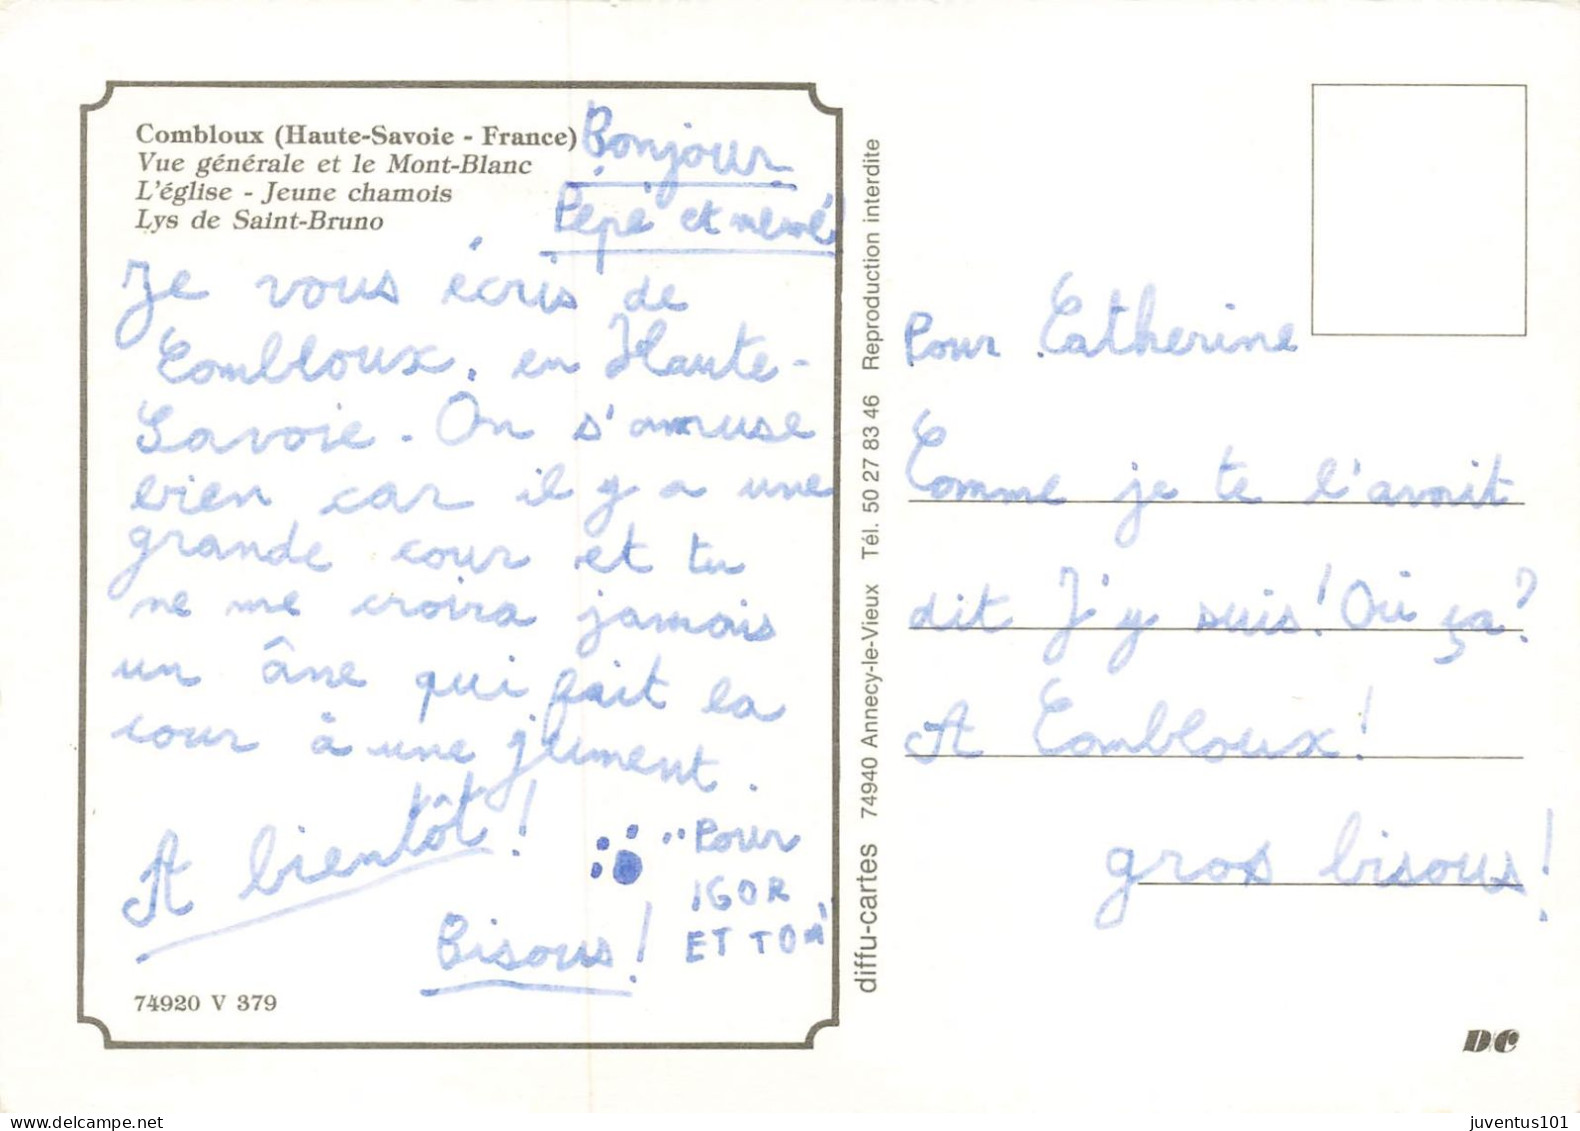 Combloux (Haute-Savoie - France)
Vue générale et le Mont-Blanc
L'église - Jeune chamois
Lys de Saint-Bruno
Bonjour
Pépé et mémé
Je vous écris de
Combloux, en Haute-
Savoie. On s'amuse
bien car il y a une
grande cour et tu
ne me croira jamais
un âne qui fait la
cour à une jument.
A bientôt!
Bisous!
Pour
IGOR
ET TOM
74920 V 379
diffu-cartes 74940 Annecy-le-Vieux Tél. 50 27 83 46 Reproduction interdite
Pour Catherine
Comme je te l'avait
dit J'y suis! Où ça?
A Combloux!
gros bisous!
D/C
juventus101